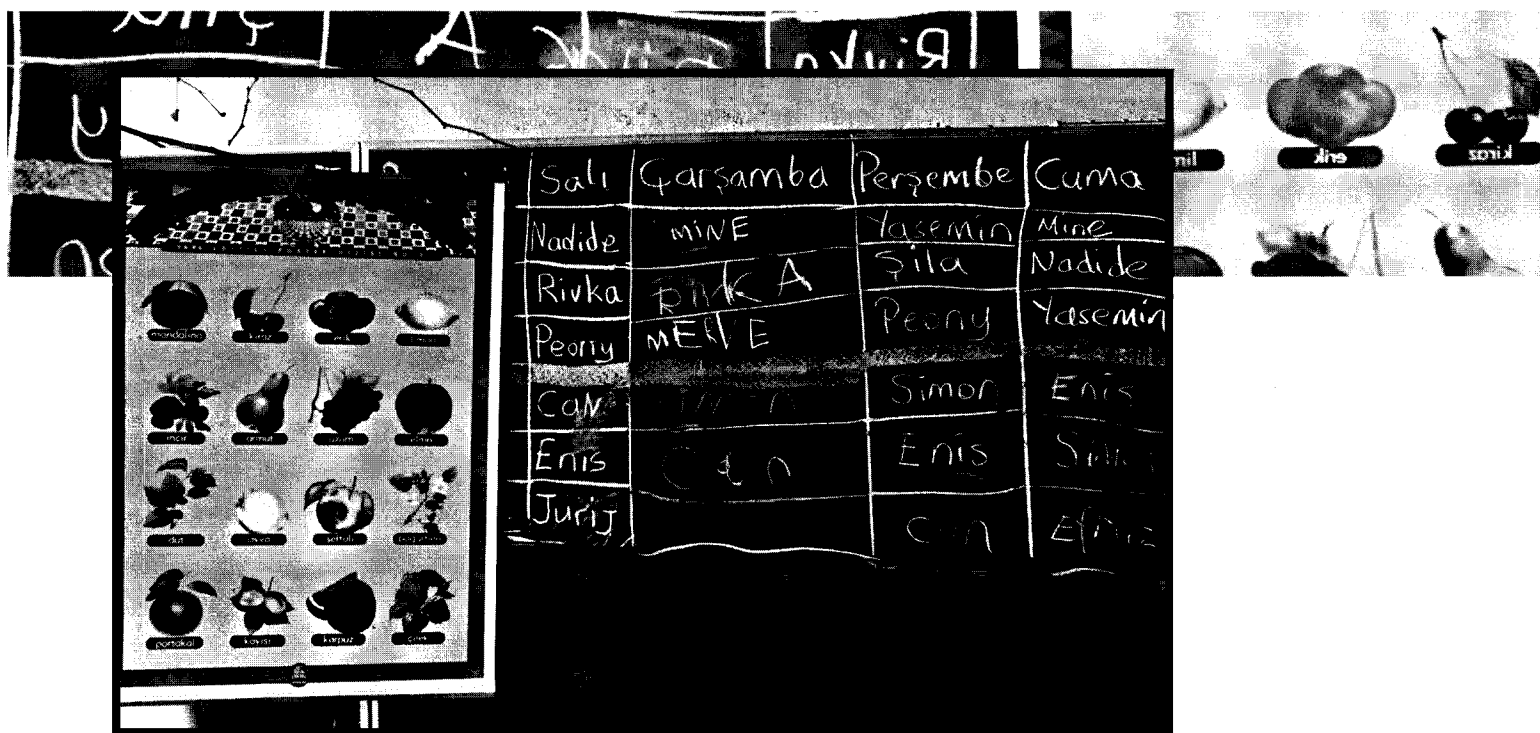 Rivka
erik kiraz
Salı Çarşamba Perşembe Cuma
Nadide MİNE Yasemin Mine
Rivka RİVKA Şila Nadide
Peony MERVE Peony Yasemin
CaN Simon Enis
Enis Can Enis
Jurij Can
mandalina kiraz erik limon
incir armut üzüm elma
dut ayva şeftali
portakal kayısı karpuz çilek